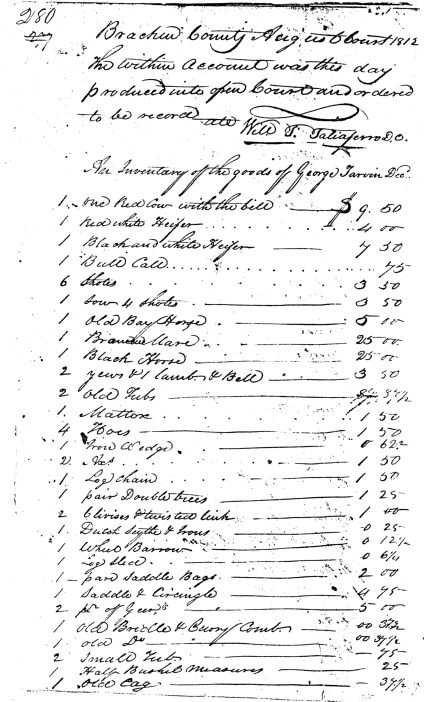 280
Bracken County August Court 1812
The within Account was this day
produced into open Court and ordered
to be record att
Will T. Taliaferro D.C.
An Inventory of the goods of George Tarvin Dec.
1 - one Red Cow with the bell $ 9. 50
1 Red white Heifer 4 00
1 Black and white Heifer 7 50
1 Bull Calf 75
6 Shotes 3 50
1 Sow 4 Shotes 3 50
1 Old Bay Horse 5 00
1 Mare 25 00
1 Black Horse 25 00
2 yews & 1 lamb & Bell 3 50
2 Old Tubs 37 1/2
1. Mattox 1 50
4 Hoes 1 50
1 Iron Wedge 0 62 1/2
2. Axes 1 50
1 Log Chain 1 50
1 pair Doubletrees 1 25
2 Clivises & twisted link 1 00
1. Dutch Sythe & Irons 0 25
1 Wheel Barrow 0 12 1/2
1 Log Slece 0 6 1/4
1 - pare Saddle Bags 2 00
1 Saddle & Circingle 4 75
2 pr of Gears 5 00
1 Old Bridle & Curry Comb 00 37 1/2
1. old Do 00 37 1/2
2 Small Tubs 75
1 Half Bushel Measures 25
1 Old Cag 37 1/2